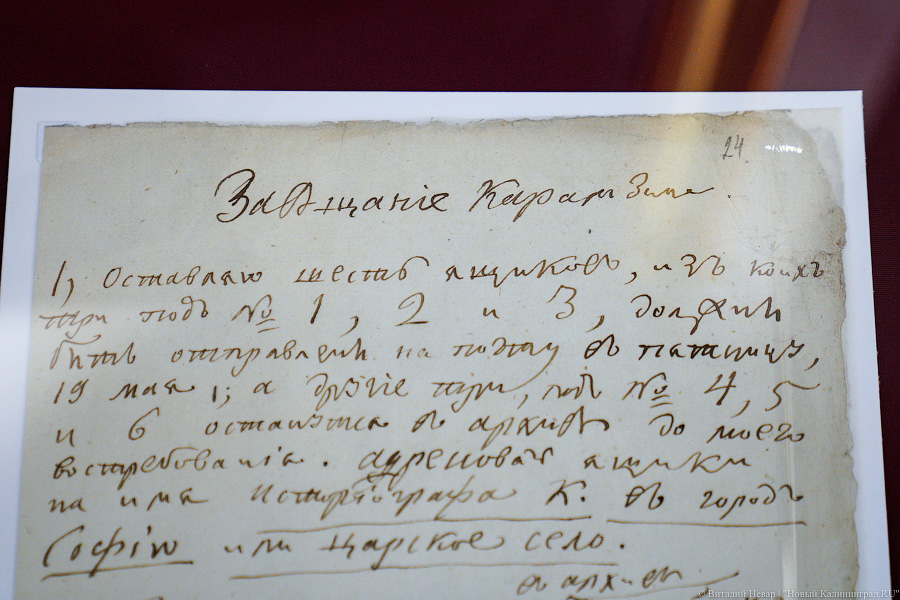 24.
Завѣщаніе Карамзина.
1, Оставляю шесть ящиковъ, изъ коихъ
три подъ № 1, 2 и 3, должны
быть отправлены на почту въ пятницу,
19 мая; а другіе три, подъ № 4, 5
и 6 останутся въ архивѣ до моего
востребованія. адресовать ящики
на имя Исторіографа К. въ городъ
Софію или царское село.
въ архивѣ
© Виталий Невар | "Новый Калининград.RU"